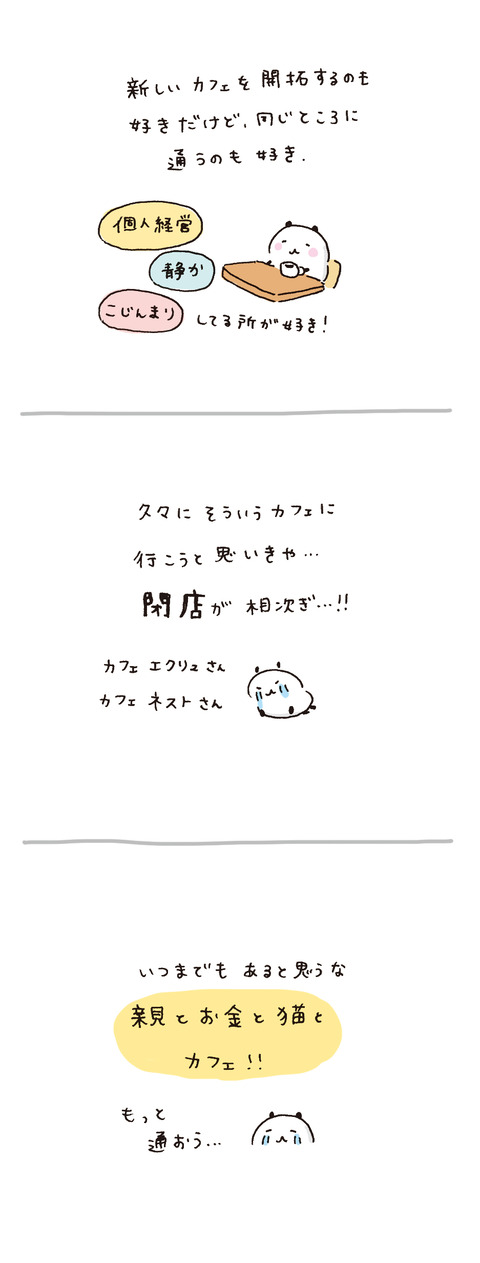 新しいカフェを開拓するのも
好きだけど、同じところに
通うのも好き.
個人経営
静か
こじんまり
してる所が好き!
久々にそういうカフェに
行こうと思いきや…
閉店が相次ぎ…!!
カフェ エクリュさん
カフェ ネストさん
いつまでもあると思うな
親とお金と猫と
カフェ!!
もっと
通おう…